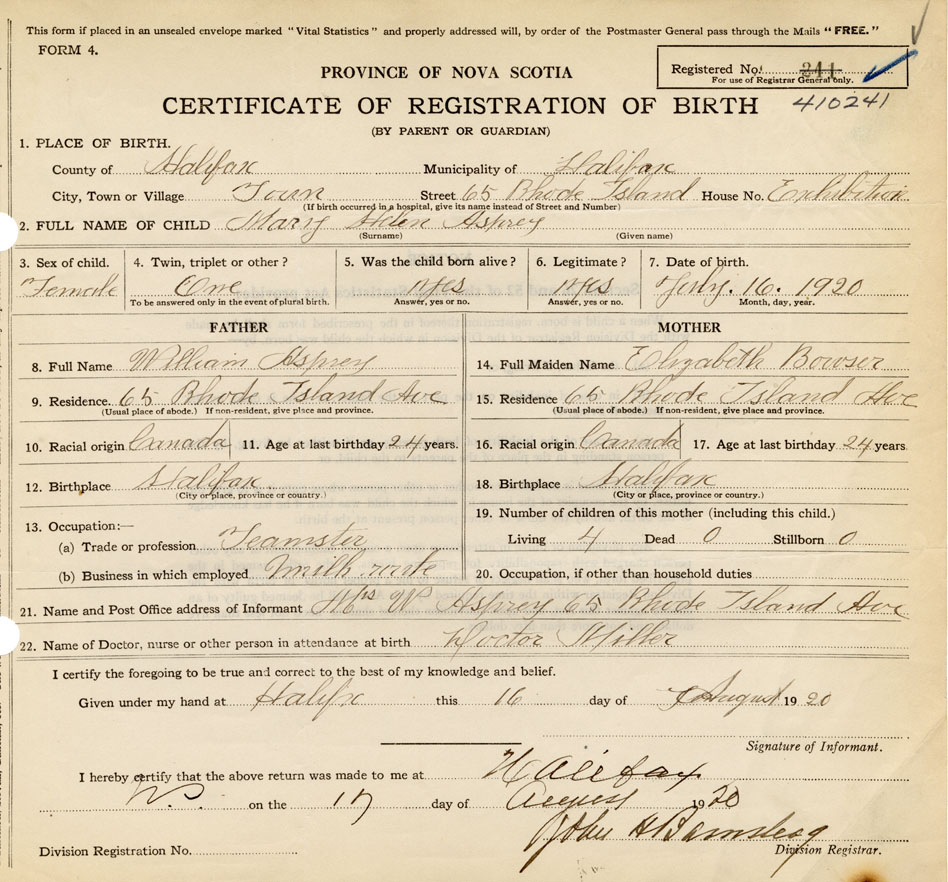 This form if placed in an unsealed envelope marked "Vital Statistics" and properly addressed will, by order of the Postmaster General pass through the Mails "FREE."
FORM 4.
PROVINCE OF NOVA SCOTIA
Registered No. 241
For use of Registrar General only.
CERTIFICATE OF REGISTRATION OF BIRTH 410241
(BY PARENT OR GUARDIAN)
1. PLACE OF BIRTH.
County of Halifax Municipality of Halifax
City, Town or Village Town Street 65 Rhode Island House No. Exhibition
(If birth occurred in a hospital, give its name instead of Street and Number)
2. FULL NAME OF CHILD Mary Helen Asprey
(Surname) (Given name)
3. Sex of child. 4. Twin, triplet or other? 5. Was the child born alive? 6. Legitimate? 7. Date of birth.
Female One Yes Yes July. 16. 1920
To be answered only in the event of plural birth. Answer, yes or no. Answer, yes or no. Month, day, year.
FATHER MOTHER
8. Full Name William Asprey 14. Full Maiden Name Elizabeth Bowser
9. Residence. 65 Rhode Island Ave 15. Residence 65 Rhode Island Ave
(Usual place of abode.) If non-resident, give place and province. (Usual place of abode.) If non-resident, give place and province.
10. Racial origin Canada 11. Age at last birthday 24 years. 16. Racial origin Canada 17. Age at last birthday 24 years
12. Birthplace Halifax 18. Birthplace Halifax
(City or place, province or country.) (City or place, province or country.)
13. Occupation:— 19. Number of children of this mother (including this child.)
(a) Trade or profession Teamster Living 4 Dead 0 Stillborn 0
(b) Business in which employed milk route 20. Occupation, if other than household duties
21. Name and Post Office address of Informant Mrs W Asprey 65 Rhode Island Ave
22. Name of Doctor, nurse or other person in attendance at birth Doctor Miller
I certify the foregoing to be true and correct to the best of my knowledge and belief.
Given under my hand at Halifx this 16 day of August 19 20
Signature of Informant.
I hereby certify that the above return was made to me at Halifax
N.S. on the 17 day of August 1920
John H Barnstead
Division Registration No. Division Registrar.